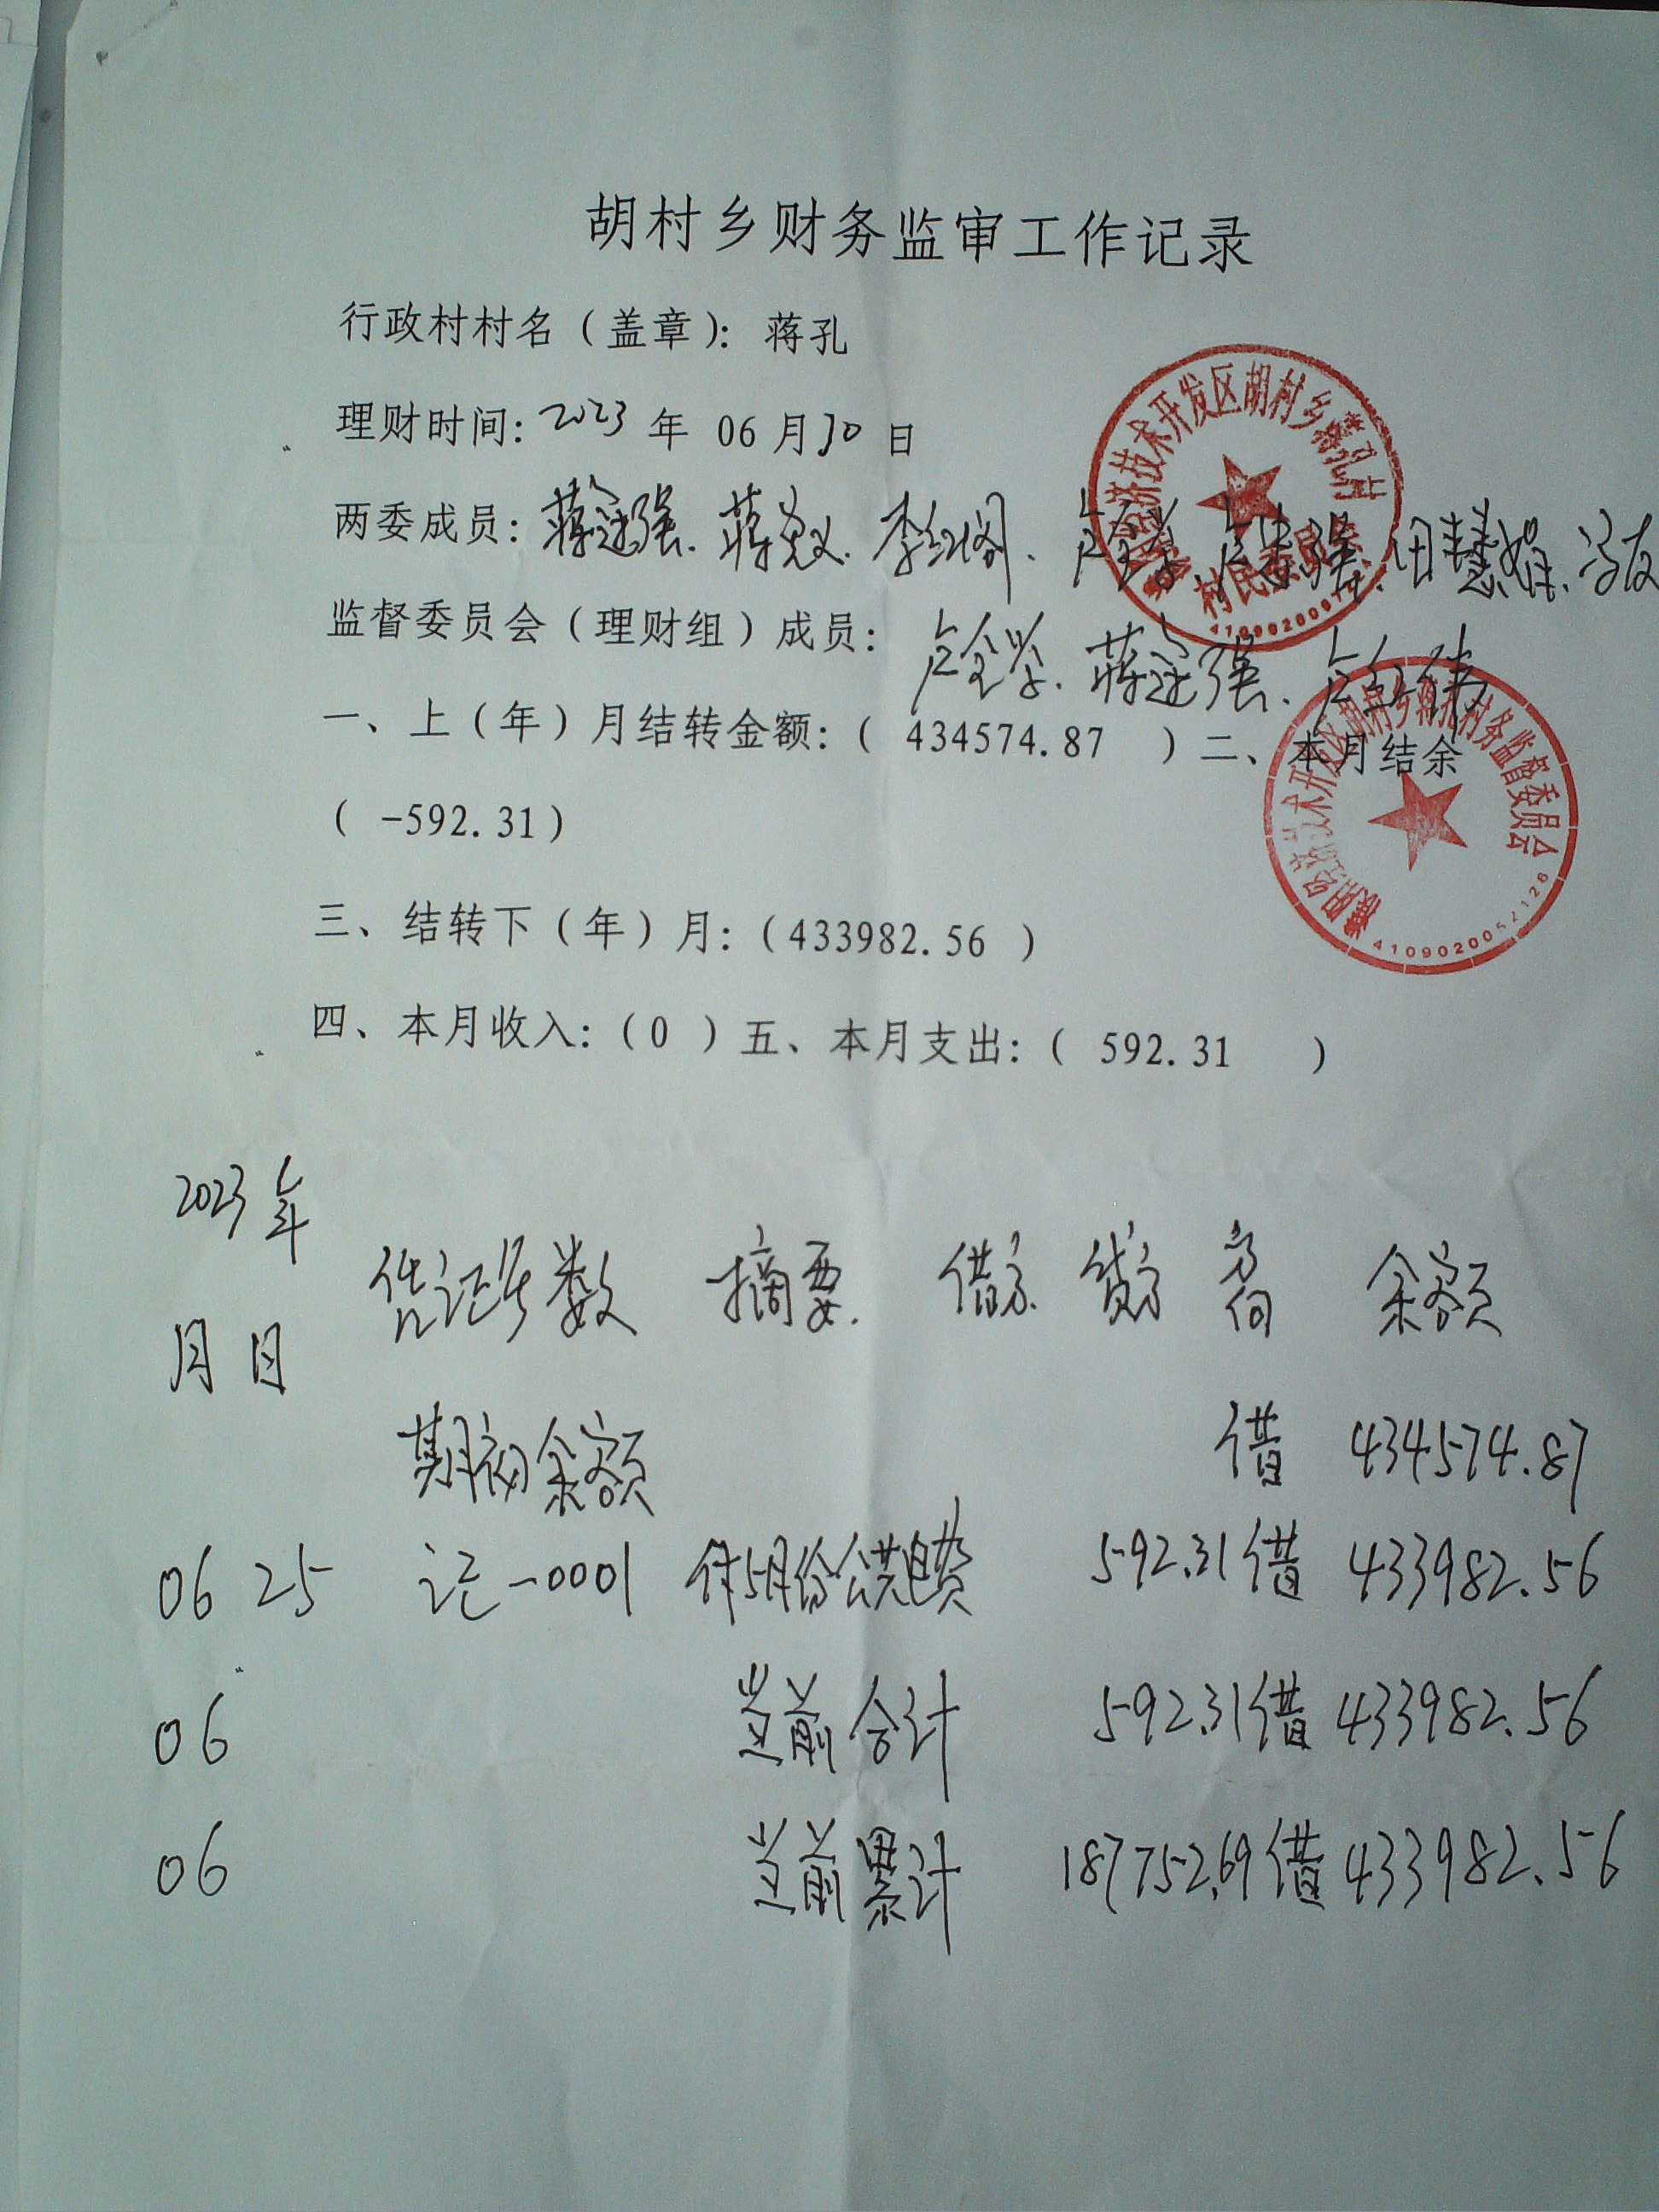 胡村乡财务监审工作记录
行政村村名（盖章）：蒋孔
理财时间：2023年 06月30日
两委成员：蒋运强、蒋关义、李红阁、卢全学、卢素强、田慧娟、冯友
监督委员会（理财组）成员：卢全学、蒋运强、卢红伟
一、上（年）月结转金额：（ 434574.87 ）二、本月结余
（ -592.31）
三、结转下（年）月：（433982.56 ）
四、本月收入：（0 ）五、本月支出：（ 592.31 ）
经济技术开发区胡村乡蒋孔村
村民委员会
濮阳经济技术开发区胡村乡蒋孔村务监督委员会
4109020057126
2023年
月 日 凭证号数 摘要 借方 贷方 方向 余额
期初余额 借 434574.87
06 25 记-0001 付5月份公共电费 592.31 借 433982.56
06 当前合计 592.31 借 433982.56
06 当前累计 187752.69 借 433982.56